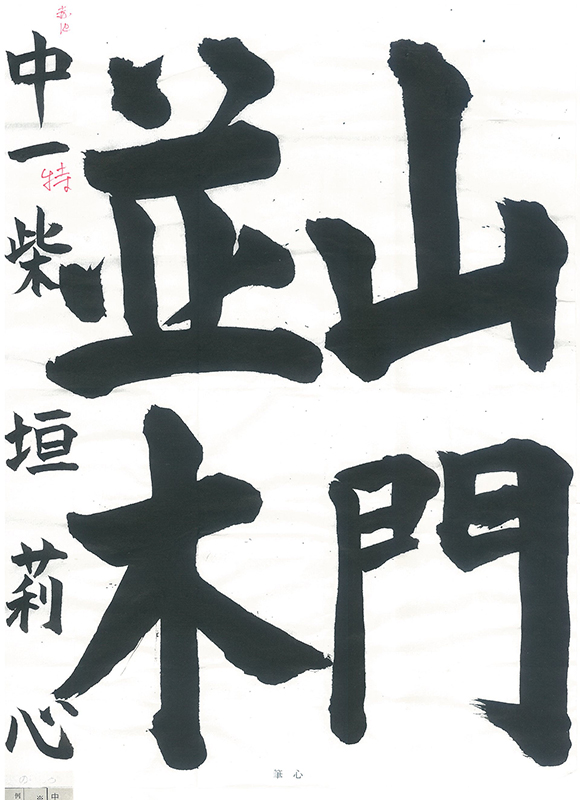 山門
並木
中一 柴垣莉心
特
心筆